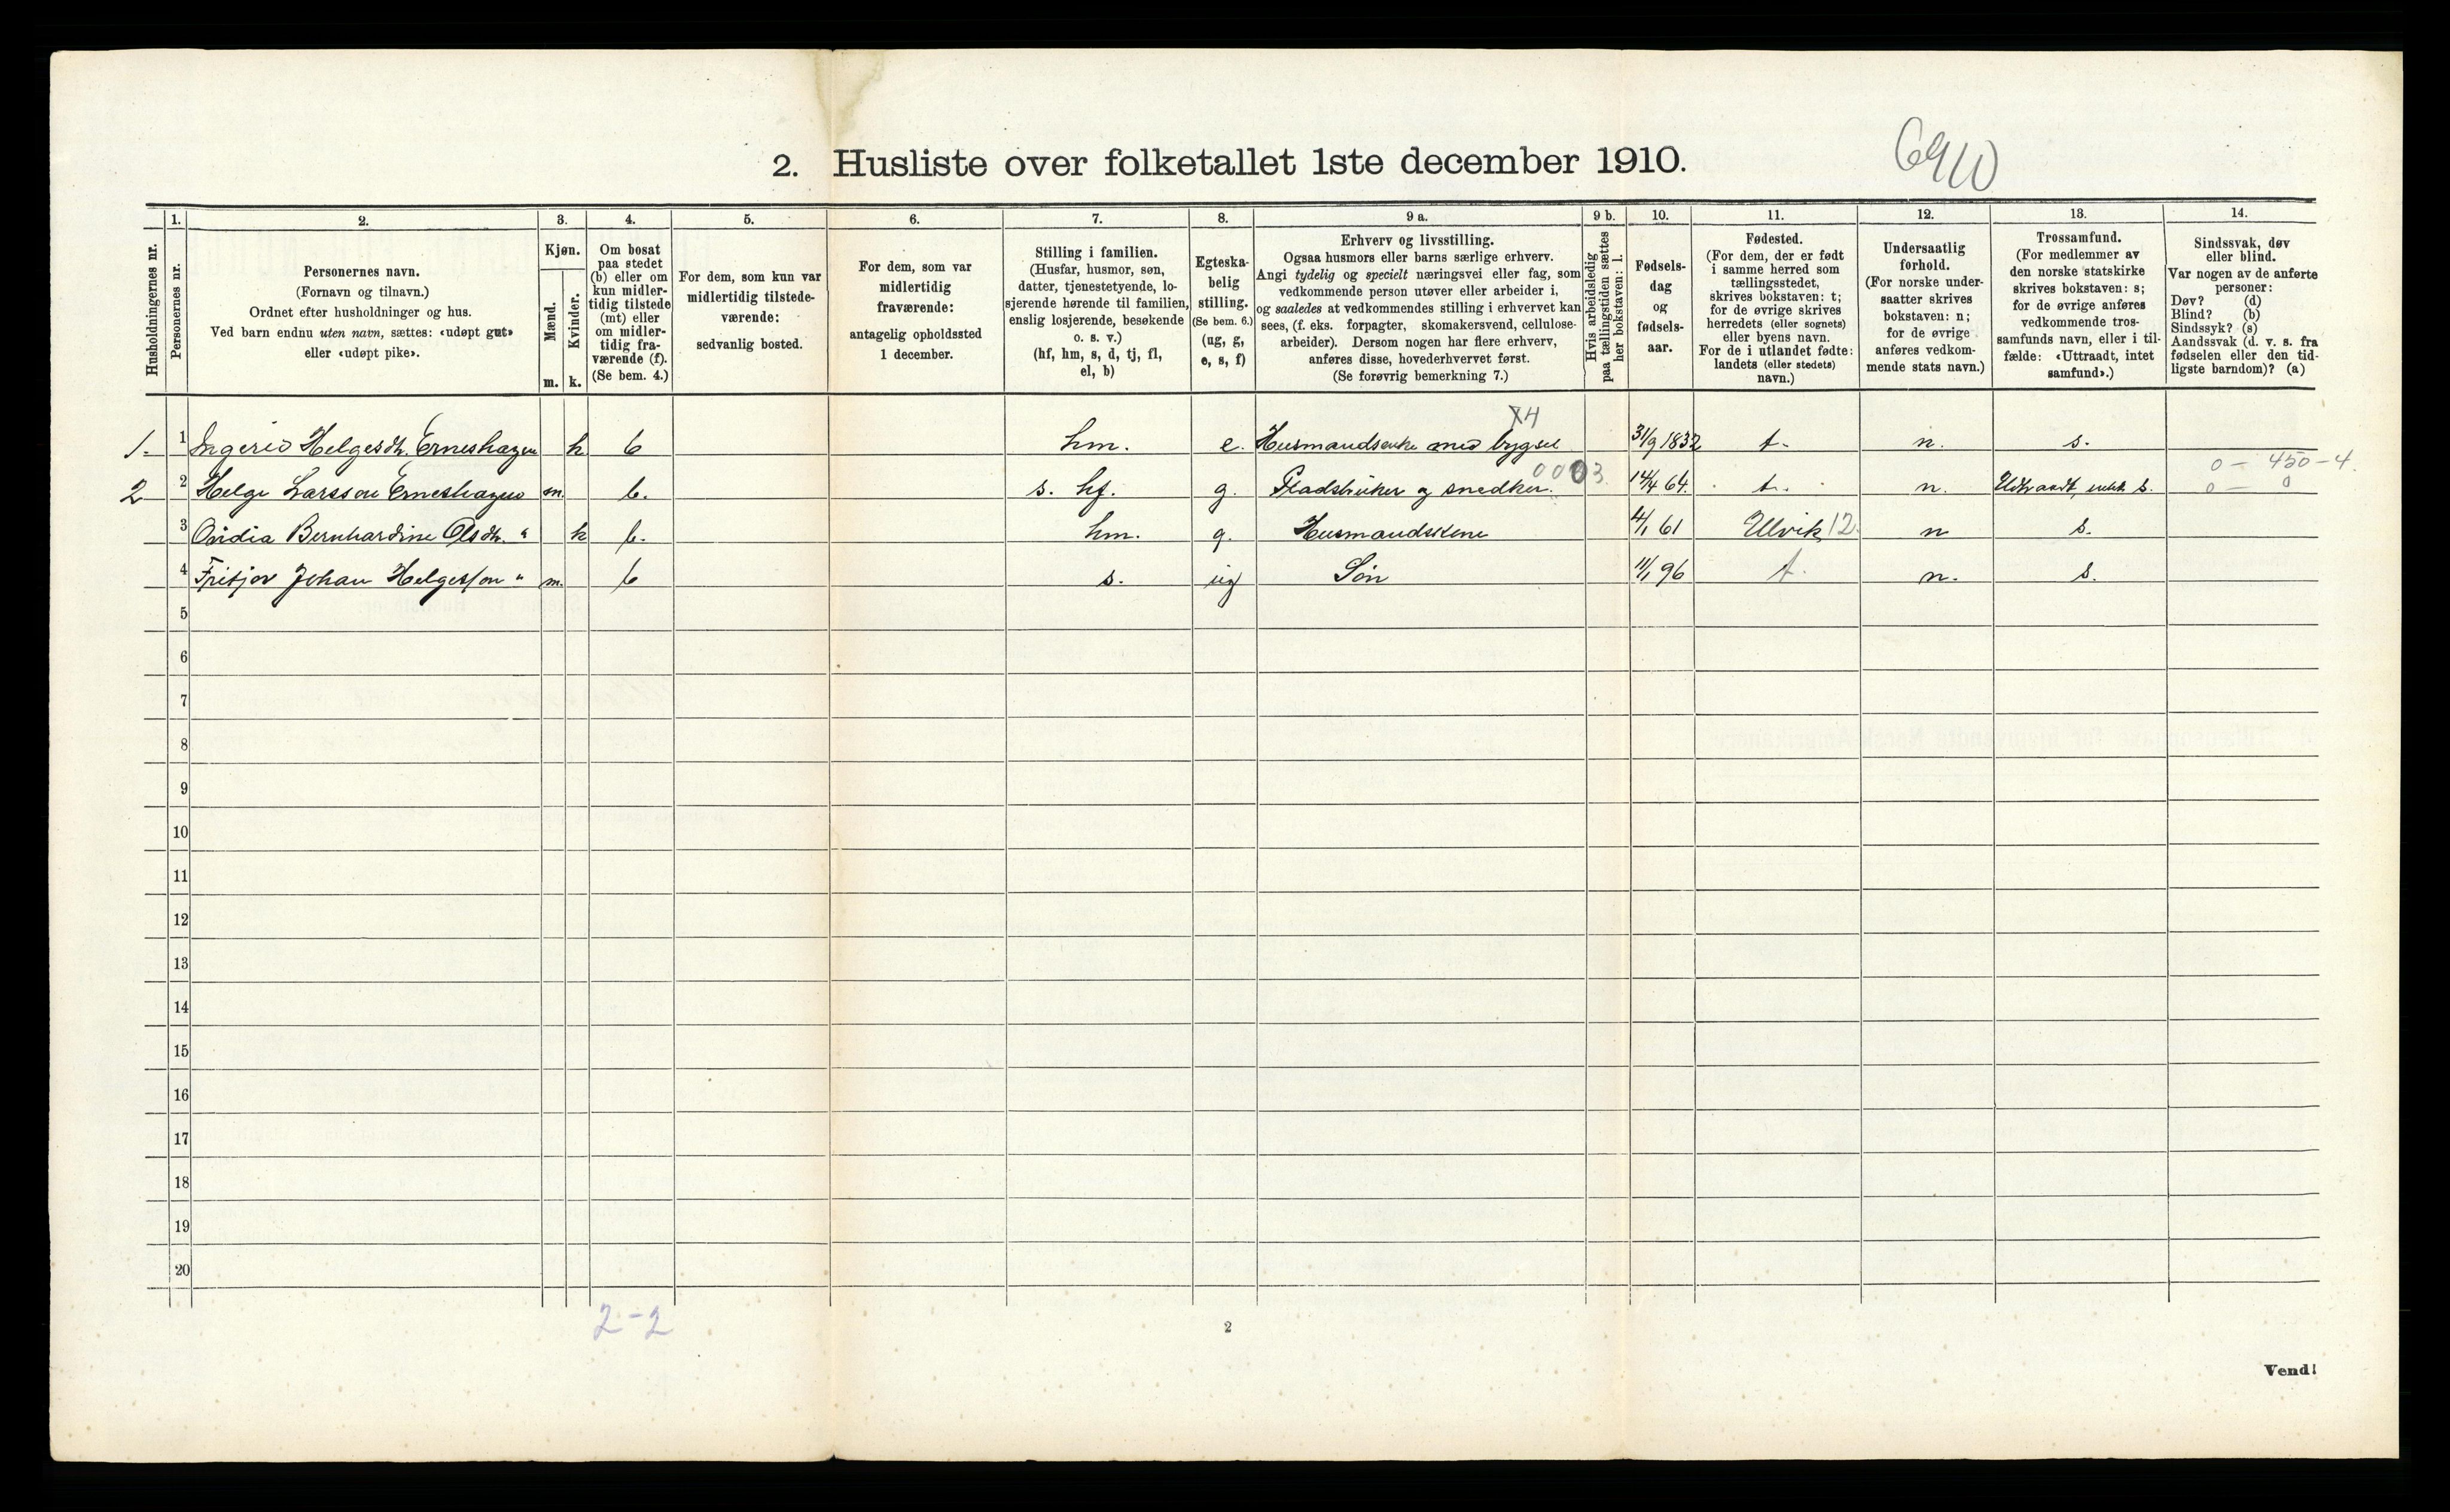 2. Husliste over folketallet 1ste december 1910.
6910
Husholdningernes nr.
1.
Personernes nr.
2.
Personernes navn.
(Fornavn og tilnavn.)
Ordnet efter husholdninger og hus.
Ved barn endnu uten navn, sættes: «udøpt gut»
eller «udøpt pike».
3.
Kjøn.
Mænd.
Kvinder.
m. k.
4.
Om bosat
paa stedet
(b) eller om
kun midler-
tidig tilstede
(mt) eller
om midler-
tidig fra-
værende (f).
(Se bem. 4.)
5.
For dem, som kun var
midlertidig tilstede-
værende:
sedvanlig bosted.
6.
For dem, som var
midlertidig
fraværende:
antagelig opholdssted
1 december.
7.
Stilling i familien.
(Husfar, husmor, søn,
datter, tjenestetyende, lo-
sjerende hørende til familien,
enslig losjerende, besøkende
o. s. v.)
(hf, hm, s, d, tj, fl,
el, b)
8.
Egteska-
belig
stilling.
(Se bem. 6.)
(ug, g,
e, s, f)
9 a.
Erhverv og livsstilling.
Ogsaa husmors eller barns særlige erhverv.
Angi tydelig og specielt næringsvei eller fag, som
vedkommende person utøver eller arbeider i,
og saaledes at vedkommendes stilling i erhvervet kan
sees, (f. eks. forpagter, skomakersvend, cellulose-
arbeider). Dersom nogen har flere erhverv,
anføres disse, hovederhvervet først.
(Se forøvrig bemerkning 7.)
9 b.
Hvis arbeidsledig
paa tællingstiden sættes
her bokstaven: l.
10.
Fødsels-
dag
og
fødsels-
aar.
11.
Fødested.
(For dem, der er født
i samme herred som
tællingsstedet,
skrives bokstaven: t;
for de øvrige skrives
herredets (eller sognets)
eller byens navn.
For de i utlandet fødte:
landets (eller stedets)
navn.)
12.
Undersaatlig
forhold.
(For norske under-
saatter skrives
bokstaven: n;
for de øvrige
anføres vedkom-
mende stats navn.)
13.
Trossamfund.
(For medlemmer av
den norske statskirke
skrives bokstaven: s;
for de øvrige anføres
vedkommende tros-
samfunds navn, eller i til-
fælde: «Uttraadt, intet
samfund».)
14.
Sindssvak, døv
eller blind.
Var nogen av de anførte
personer:
Døv? (d)
Blind? (b)
Sindssyk? (s)
Aandssvak (d. v. s. fra
fødselen eller den tid-
ligste barndom)? (a)
X4
1. 1 Ingerid Helgesdt. Erneshagen k b hm. e. Husmandsenke med bygsel 31/9 1832 t. n. s.
0003 0 - 450 - 4.
2 2 Helge Larsson Erneshagen m. b. s. hf. g. Pladsbruker og snedker. 14/4 64. t. n. Udtraadt, intet s. 0 - 0
3 Ovidia Bernhardine Olsdt. " k b. hm. g. Husmandskone 4/1 61 Ulvik 12 n s.
4 Fritjov Johan Helgesson " m. b s. ug Søn 11/1 96 t. n. s.
5
6
7
8
9
10
11
12
13
14
15
16
17
18
19
20
2-2
2
Vend!